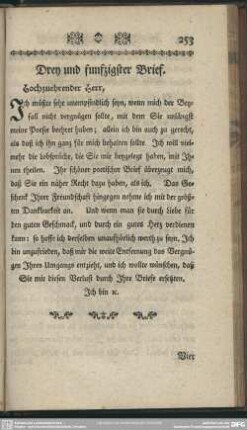 253
Drey und funfzigster Brief.
Hochzuehrender Herr,
Ich müßte sehr unempfindlich seyn, wenn mich der Bey-
fall nicht vergnügen sollte, mit dem Sie unlängst
meine Poesie beehret haben; allein ich bin auch zu gerecht,
als daß ich ihn ganz für mich behalten sollte. Ich will viel-
mehr die Lobsprüche, die Sie mir beygelegt haben, mit Ih-
nen theilen. Ihr schöner poetischer Brief überzeugt mich,
daß Sie ein näher Recht dazu haben, als ich. Das Ge-
schenk Ihrer Freundschaft hingegen nehme ich mit der größ-
ten Dankbarkeit an. Und wenn man sie durch Liebe für
den guten Geschmack, und durch ein gutes Herz verdienen
kann: so hoffe ich derselben unaufhörlich werth zu seyn. Ich
bin unzufrieden, daß mir die weite Entfernung das Vergnü-
gen Ihres Umgangs entzieht, und ich wollte wünschen, daß
Sie mir diesen Verlust durch Ihre Briefe ersetzten.
Ich bin ꝛc.
Vier